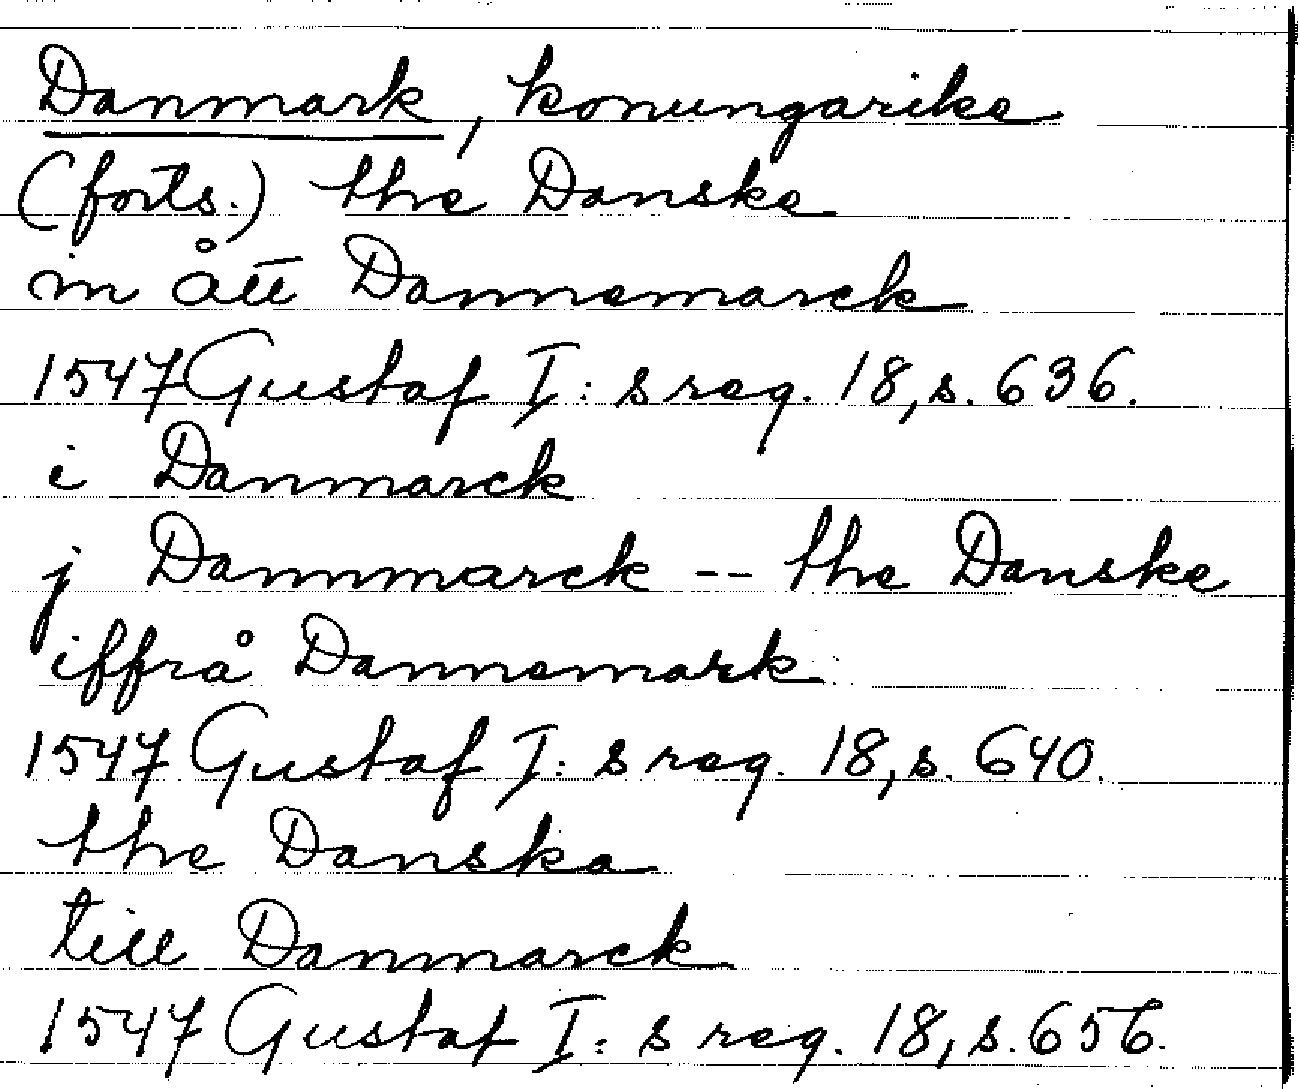 Danmark, konungarike
(forts.) the Danske
inått Dannemarck
1547 Gustaf I:s reg. 18, s. 636.
i Danmarck
j Dannmarck -- the Danske
iffrå Dannemark
1547 Gustaf I:s reg. 18, s. 640.
the Danska
till Danmarck
1547 Gustaf I:s reg. 18, s. 656.